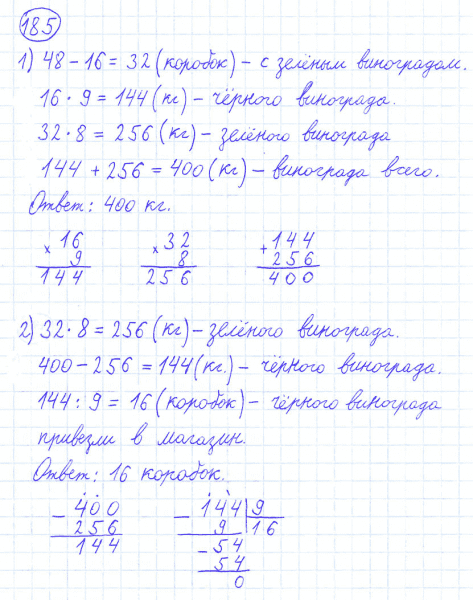 185
1) 48 - 16 = 32 (коробок) - с зелёным виноградом.
16 · 9 = 144 (кг) - чёрного винограда.
32 · 8 = 256 (кг) - зелёного винограда
144 + 256 = 400 (кг) - винограда всего.
Ответ: 400 кг.
× 16 × 32 + 144
9 8 256
144 256 400
2) 32 · 8 = 256 (кг) - зелёного винограда.
400 - 256 = 144 (кг.) - чёрного винограда.
144 : 9 = 16 (коробок) - чёрного винограда
привезли в магазин.
Ответ: 16 коробок.
- 400 - 144 | 9
256 9 16
144 - 54
54
0